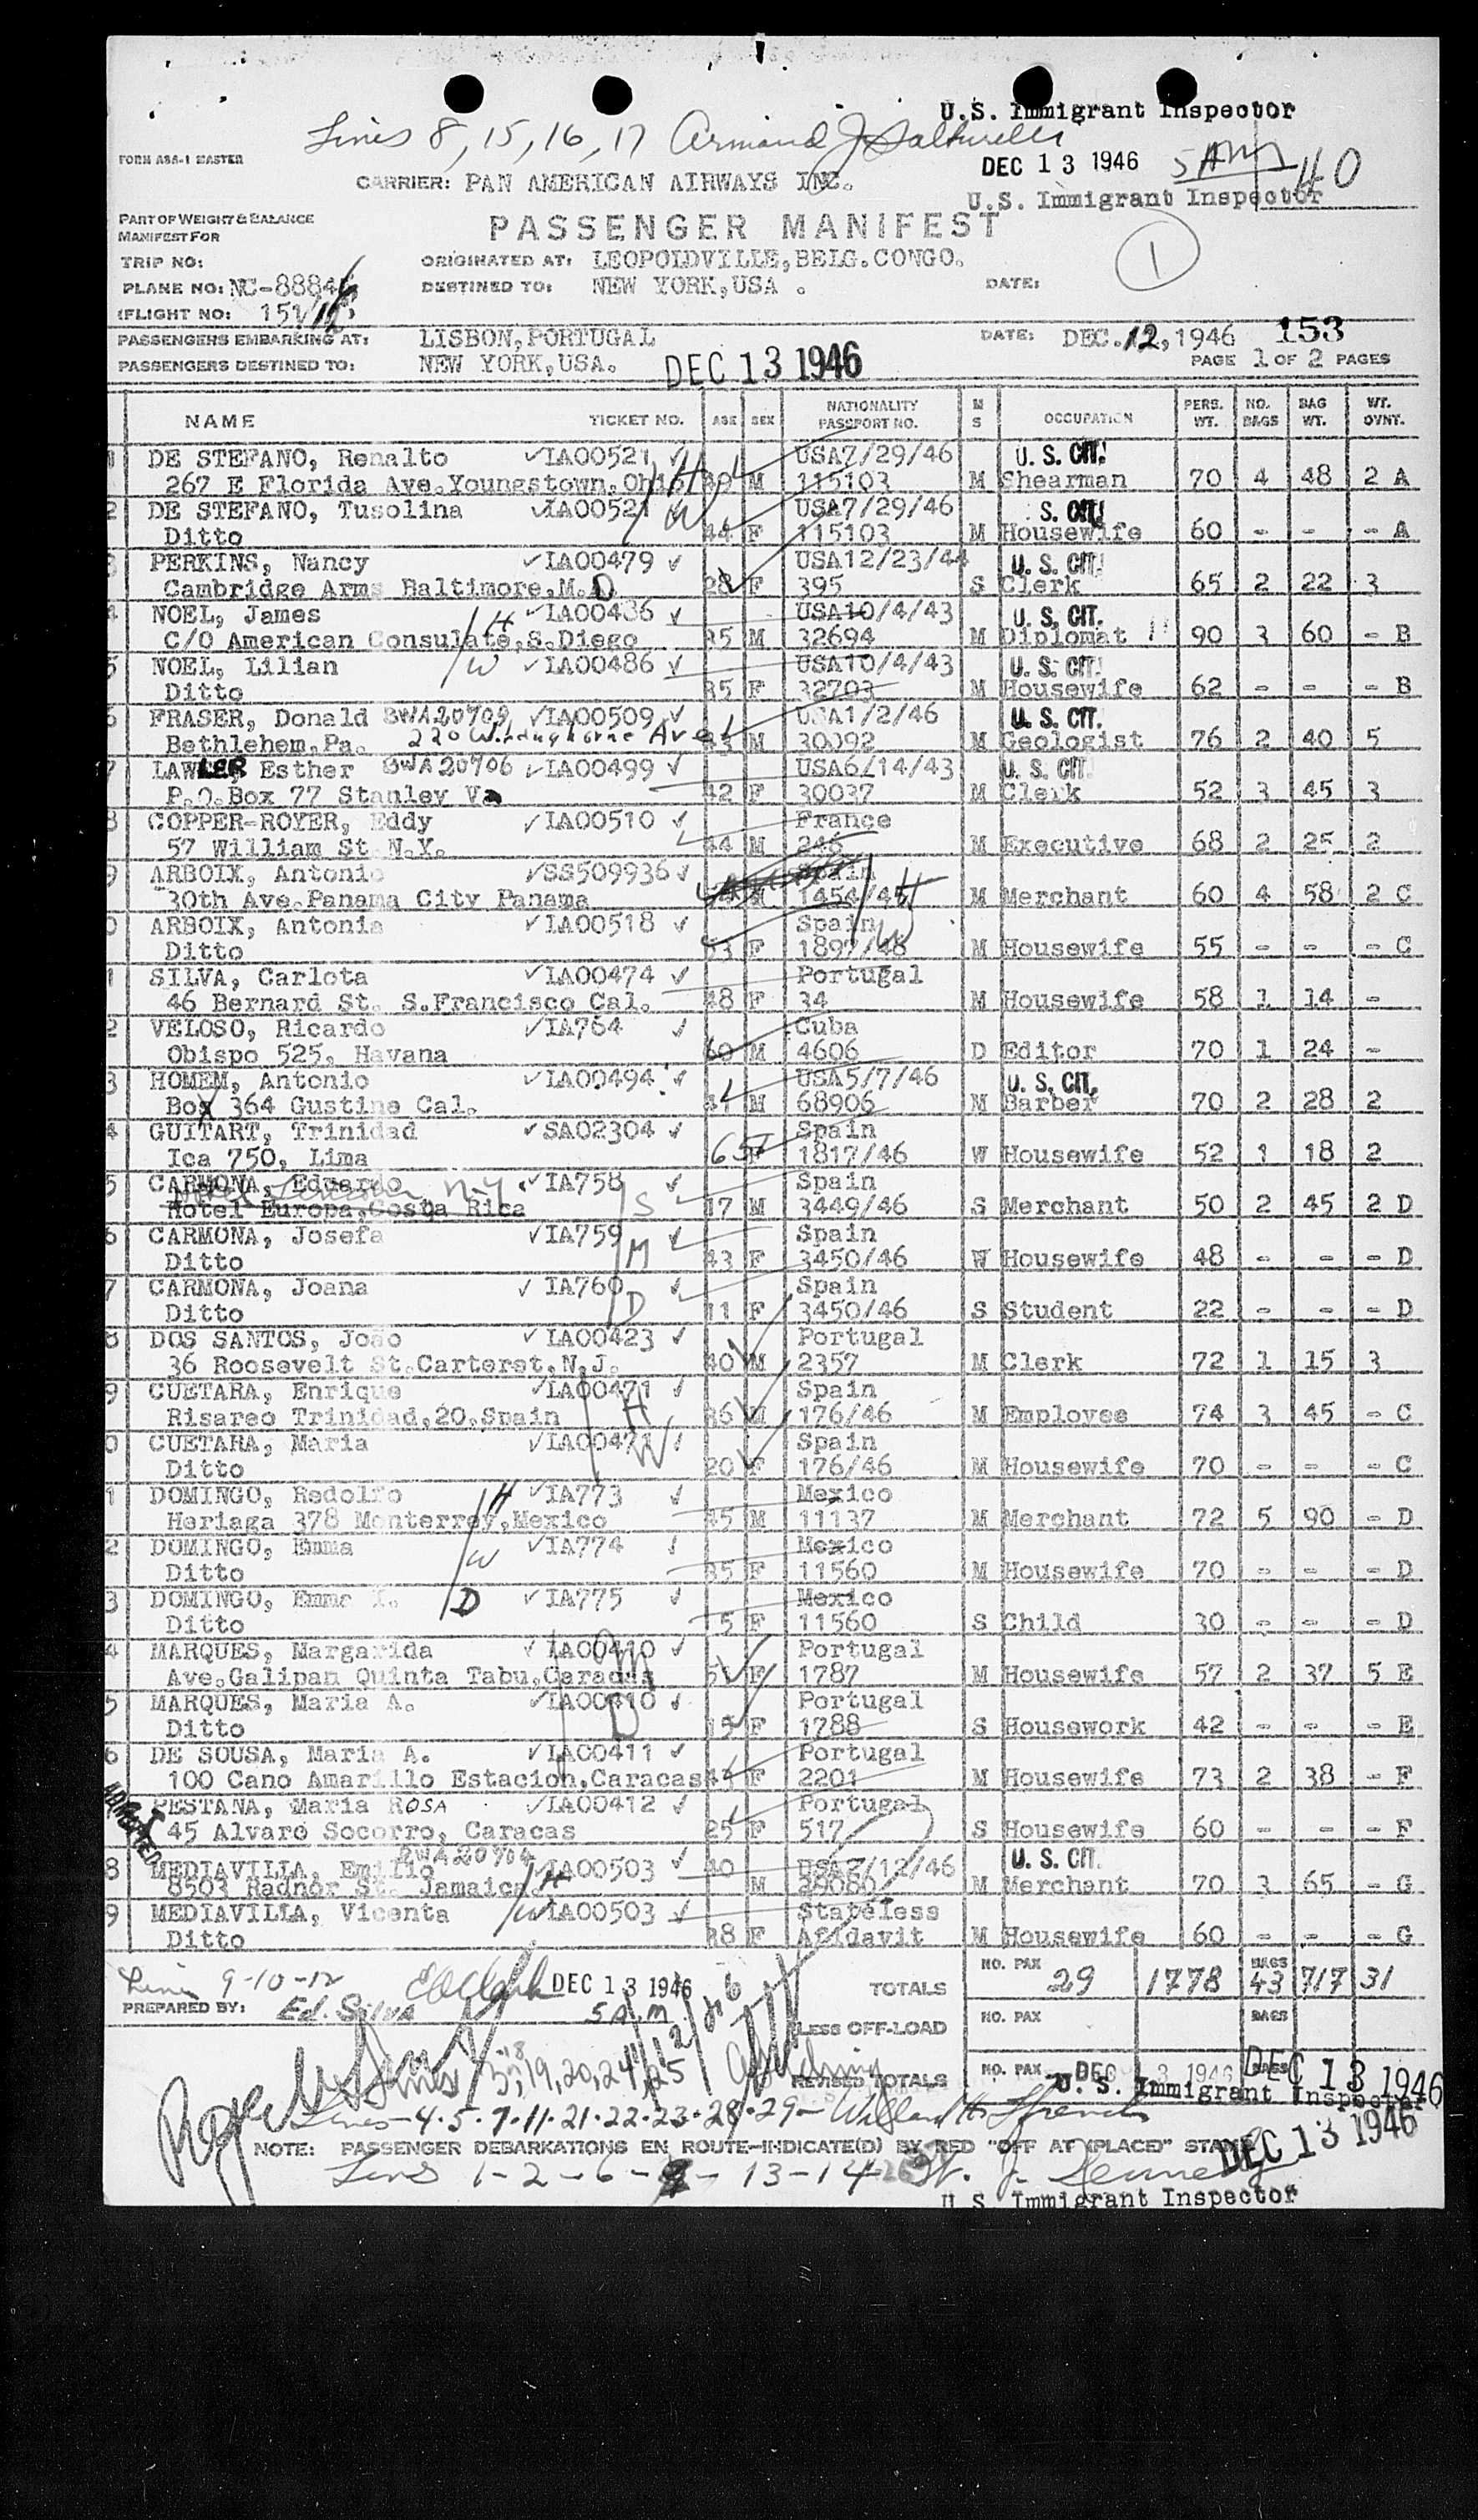 U.S. Immigrant Inspector
Lines 8, 15, 16, 17 Armand J.
FORM ASA-1 MASTER
DEC 13 1946 5 AM 40
CARRIER: PAN AMERICAN AIRWAYS INC.
U.S. Immigrant Inspector
PART OF WEIGHT & BALANCE
MANIFEST FOR
PASSENGER MANIFEST
1
TRIP NO:
ORIGINATED AT: LEOPOLDVILLE, BELG. CONGO.
PLANE NO: NC-8884
DESTINED TO: NEW YORK, USA .
DATE:
(FLIGHT NO: 151/
PASSENGERS EMBARKING AT: LISBON, PORTUGAL
DATE: DEC. 12, 1946 153
PASSENGERS DESTINED TO: NEW YORK, USA. DEC 13 1946
PAGE 1 OF 2 PAGES
NAME TICKET NO. AGE SEX NATIONALITY PASSPORT NO. M S OCCUPATION PERS. WT. NO. BAGS BAG WT. WT. OVNT.
DE STEFANO, Renalto IA00521 USA7/29/46 U. S. CIT.
267 E Florida Ave. Youngstown, Ohio H M 115103 M Shearman 70 4 48 2 A
2 DE STEFANO, Tusolina IA00521 W USA7/29/46 S. CIT.
Ditto 44 F 115103 M Housewife 60 - - - A
3 PERKINS, Nancy IA00479 USA12/23/44 U. S. CIT.
Cambridge Arms Baltimore, M.D 28 F 395 S Clerk 65 2 22 3
4 NOEL, James H IA00486 USA10/4/43 U. S. CIT.
C/O American Consulate, S. Diego 35 M 32694 M Diplomat 90 3 60 - B
5 NOEL, Lilian W IA00486 USA10/4/43 U. S. CIT.
Ditto 35 F 32703 M Housewife 62 - - - B
6 FRASER, Donald BWA20709 IA00509 USA1/2/46 U. S. CIT.
Bethlehem, Pa. 220 Ave 43 M 30092 M Geologist 76 2 40 5
7 LAWLER Esther BWA20706 IA00499 USA6/14/43 U. S. CIT.
P.O. Box 77 Stanley Va 42 F 30037 M Clerk 52 3 45 3
8 COPPER-ROYER, Eddy IA00510 France
57 William St N.Y. 44 M 246 M Executive 68 2 25 2
9 ARBOIX, Antonio SS509936 Spain
30th Ave. Panama City Panama M 1454/46 H M Merchant 60 4 58 2 C
0 ARBOIX, Antonia IA00518 Spain W
Ditto 53 F 1897/46 M Housewife 55 - - - C
1 SILVA, Carlota IA00474 Portugal
46 Bernard St. S. Francisco Cal. 48 F 34 M Housewife 58 1 14 -
2 VELOSO, Ricardo IA764 Cuba
Obispo 525, Havana 60 M 4606 D Editor 70 1 24 -
3 HOMEM, Antonio IA00494 USA5/7/46 U. S. CIT.
Box 364 Gustine Cal. 41 M 68906 M Barber 70 2 28 2
4 GUITART, Trinidad SA02304 Spain
Ica 750, Lima 65 F 1817/46 W Housewife 52 1 18 2
5 CARMONA, Eduardo N.Y. IA758 Spain
Hotel Europa, Costa Rica S 17 M 3449/46 S Merchant 50 2 45 2 D
6 CARMONA, Josefa IA759 Spain
Ditto M 43 F 3450/46 W Housewife 48 - - - D
7 CARMONA, Joana IA760 Spain
Ditto D 11 F 3450/46 S Student 22 - - - D
8 DOS SANTOS, João IA00423 Portugal
36 Roosevelt St. Carteret, N.J. 40 M 2357 M Clerk 72 1 15 3
9 CUETARA, Enrique IA00471 Spain
Risareo Trinidad, 20, Spain H 36 M 176/46 M Employee 74 3 45 - C
0 CUETARA, Maria IA00471 W Spain
Ditto 20 F 176/46 M Housewife 70 - - - C
1 DOMINGO, Redolfo H IA773 Mexico
Heriaga 378 Monterrey, Mexico 35 M 11137 M Merchant 72 5 90 - D
2 DOMINGO, Emma W IA774 Mexico
Ditto 35 F 11560 M Housewife 70 - - - D
3 DOMINGO, Emma D IA775 Mexico
Ditto 5 F 11560 S Child 30 - - - D
4 MARQUES, Margarida IA00410 Portugal
Ave. Galipan Quinta Tabu, Caracas M F 1787 M Housewife 57 2 37 5 E
5 MARQUES, Maria A. IA00410 Portugal
Ditto D 15 F 1788 S Housework 42 - - - E
6 DE SOUSA, Maria A. IA00411 Portugal
100 Cano Amarillo Estacion, Caracas F 2201 M Housewife 73 2 38 - F
ADMITTED PESTANA, Maria ROSA IA00412 Portugal
45 Alvaro Socorro, Caracas 25 F 517 S Housewife 60 - - - F
8 MEDIAVILLA, Emilio BWA20704 IA00503 40 USA2/12/46 U. S. CIT.
8503 Radnor St. Jamaica. H M 29080 M Merchant 70 3 65 - G
9 MEDIAVILLA, Vicenta W IA00503 Stateless
Ditto 38 F Afidavit M Housewife 60 - - - G
Lines 9-10-12 DEC 13 1946 TOTALS NO. PAX 29 1778 BAGS 43 717 31
PREPARED BY: Ed. Silva 5 A.M
LESS OFF-LOAD NO. PAX BAGS
Lines 3, 18, 19, 20, 24, 25
REVISED TOTALS NO. PAX DEC 13 1946 BAGS DEC 13 1946
U. S. Immigrant Inspector
Lines - 4 - 5 - 7 - 11 - 21 - 22 - 23 - 28 - 29 - Willard H.
DEC 13 1946
NOTE: PASSENGER DEBARKATIONS EN ROUTE-INDICATE(D) BY RED "OFF AT (PLACE)" STAMP
Lines 1 - 2 - 6 - 13 - 14 J.
U. S. Immigrant Inspector